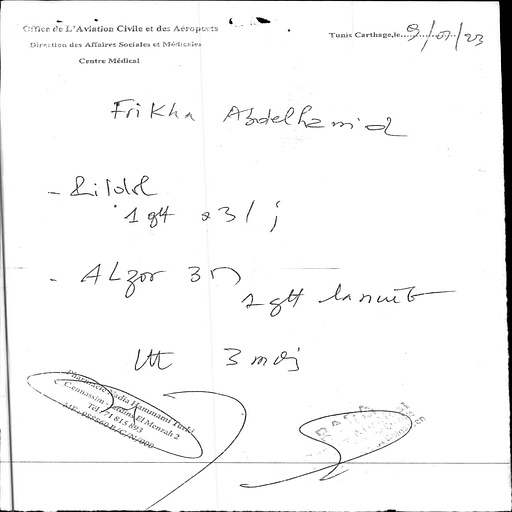 Office de L'Aviation Civile et des Aéroports
Direction des Affaires Sociales et Médicales
Centre Médical
Tunis Carthage,le...9/07/23
Frikha Abdelhamid
1 gtt x 3 / j
- ALzor 3D
1 gtt la nuit
ttt 3 mois
Pharmacie Nadia Hammami Turki
C.ennassim - Jardins El Menzah 2
Tél: 71 815 893